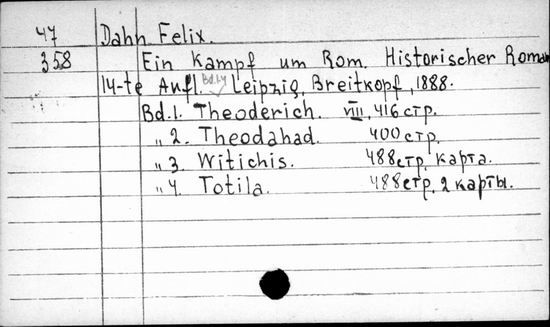 47 Dahn Felix.
358 Ein Kampf um Rom. Historischer Roman
14-te Aufl. Bd.1-4 Leipzig, Breitkopf, 1888.
Bd.1. Theoderich. VIII, 416 стр.
„ 2. Theodahad. 400 стр.
„ 3. Witichis. 488 стр. карта.
„ 4. Totila. 488 стр. 2 карты.